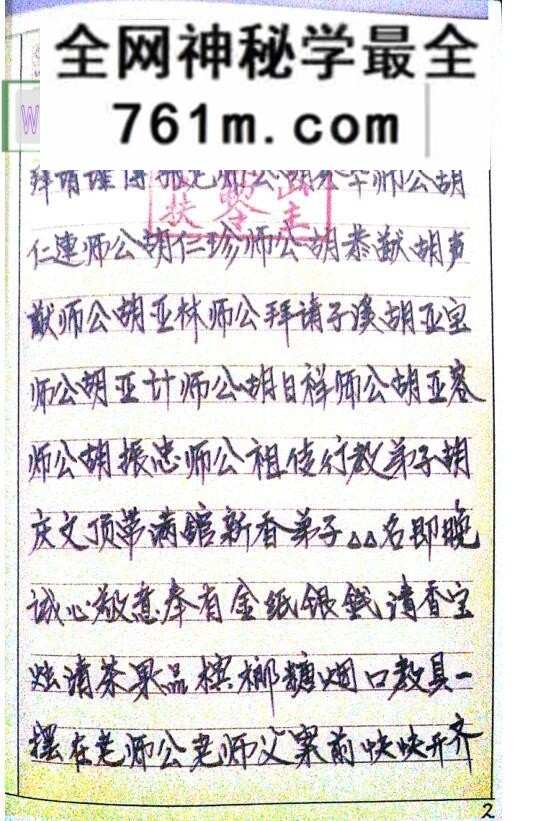 全网神秘学最全
761m.com
W
拜请 师公胡 师公胡
仁連师公胡仁珍师公胡恭猷胡声
猷师公胡亚林师公拜请子溪胡亚宝
师公胡亚计师公胡日祥师公胡亚客
师公胡振忠师公祖传行教弟子胡
庆文顶带满馆新香弟子△△名即晚
诚心敬意奉有金纸银錢清香宝
炷清茶果品槟榔糖烟口教具一
摆在老师公老师父案前快快开齐
2